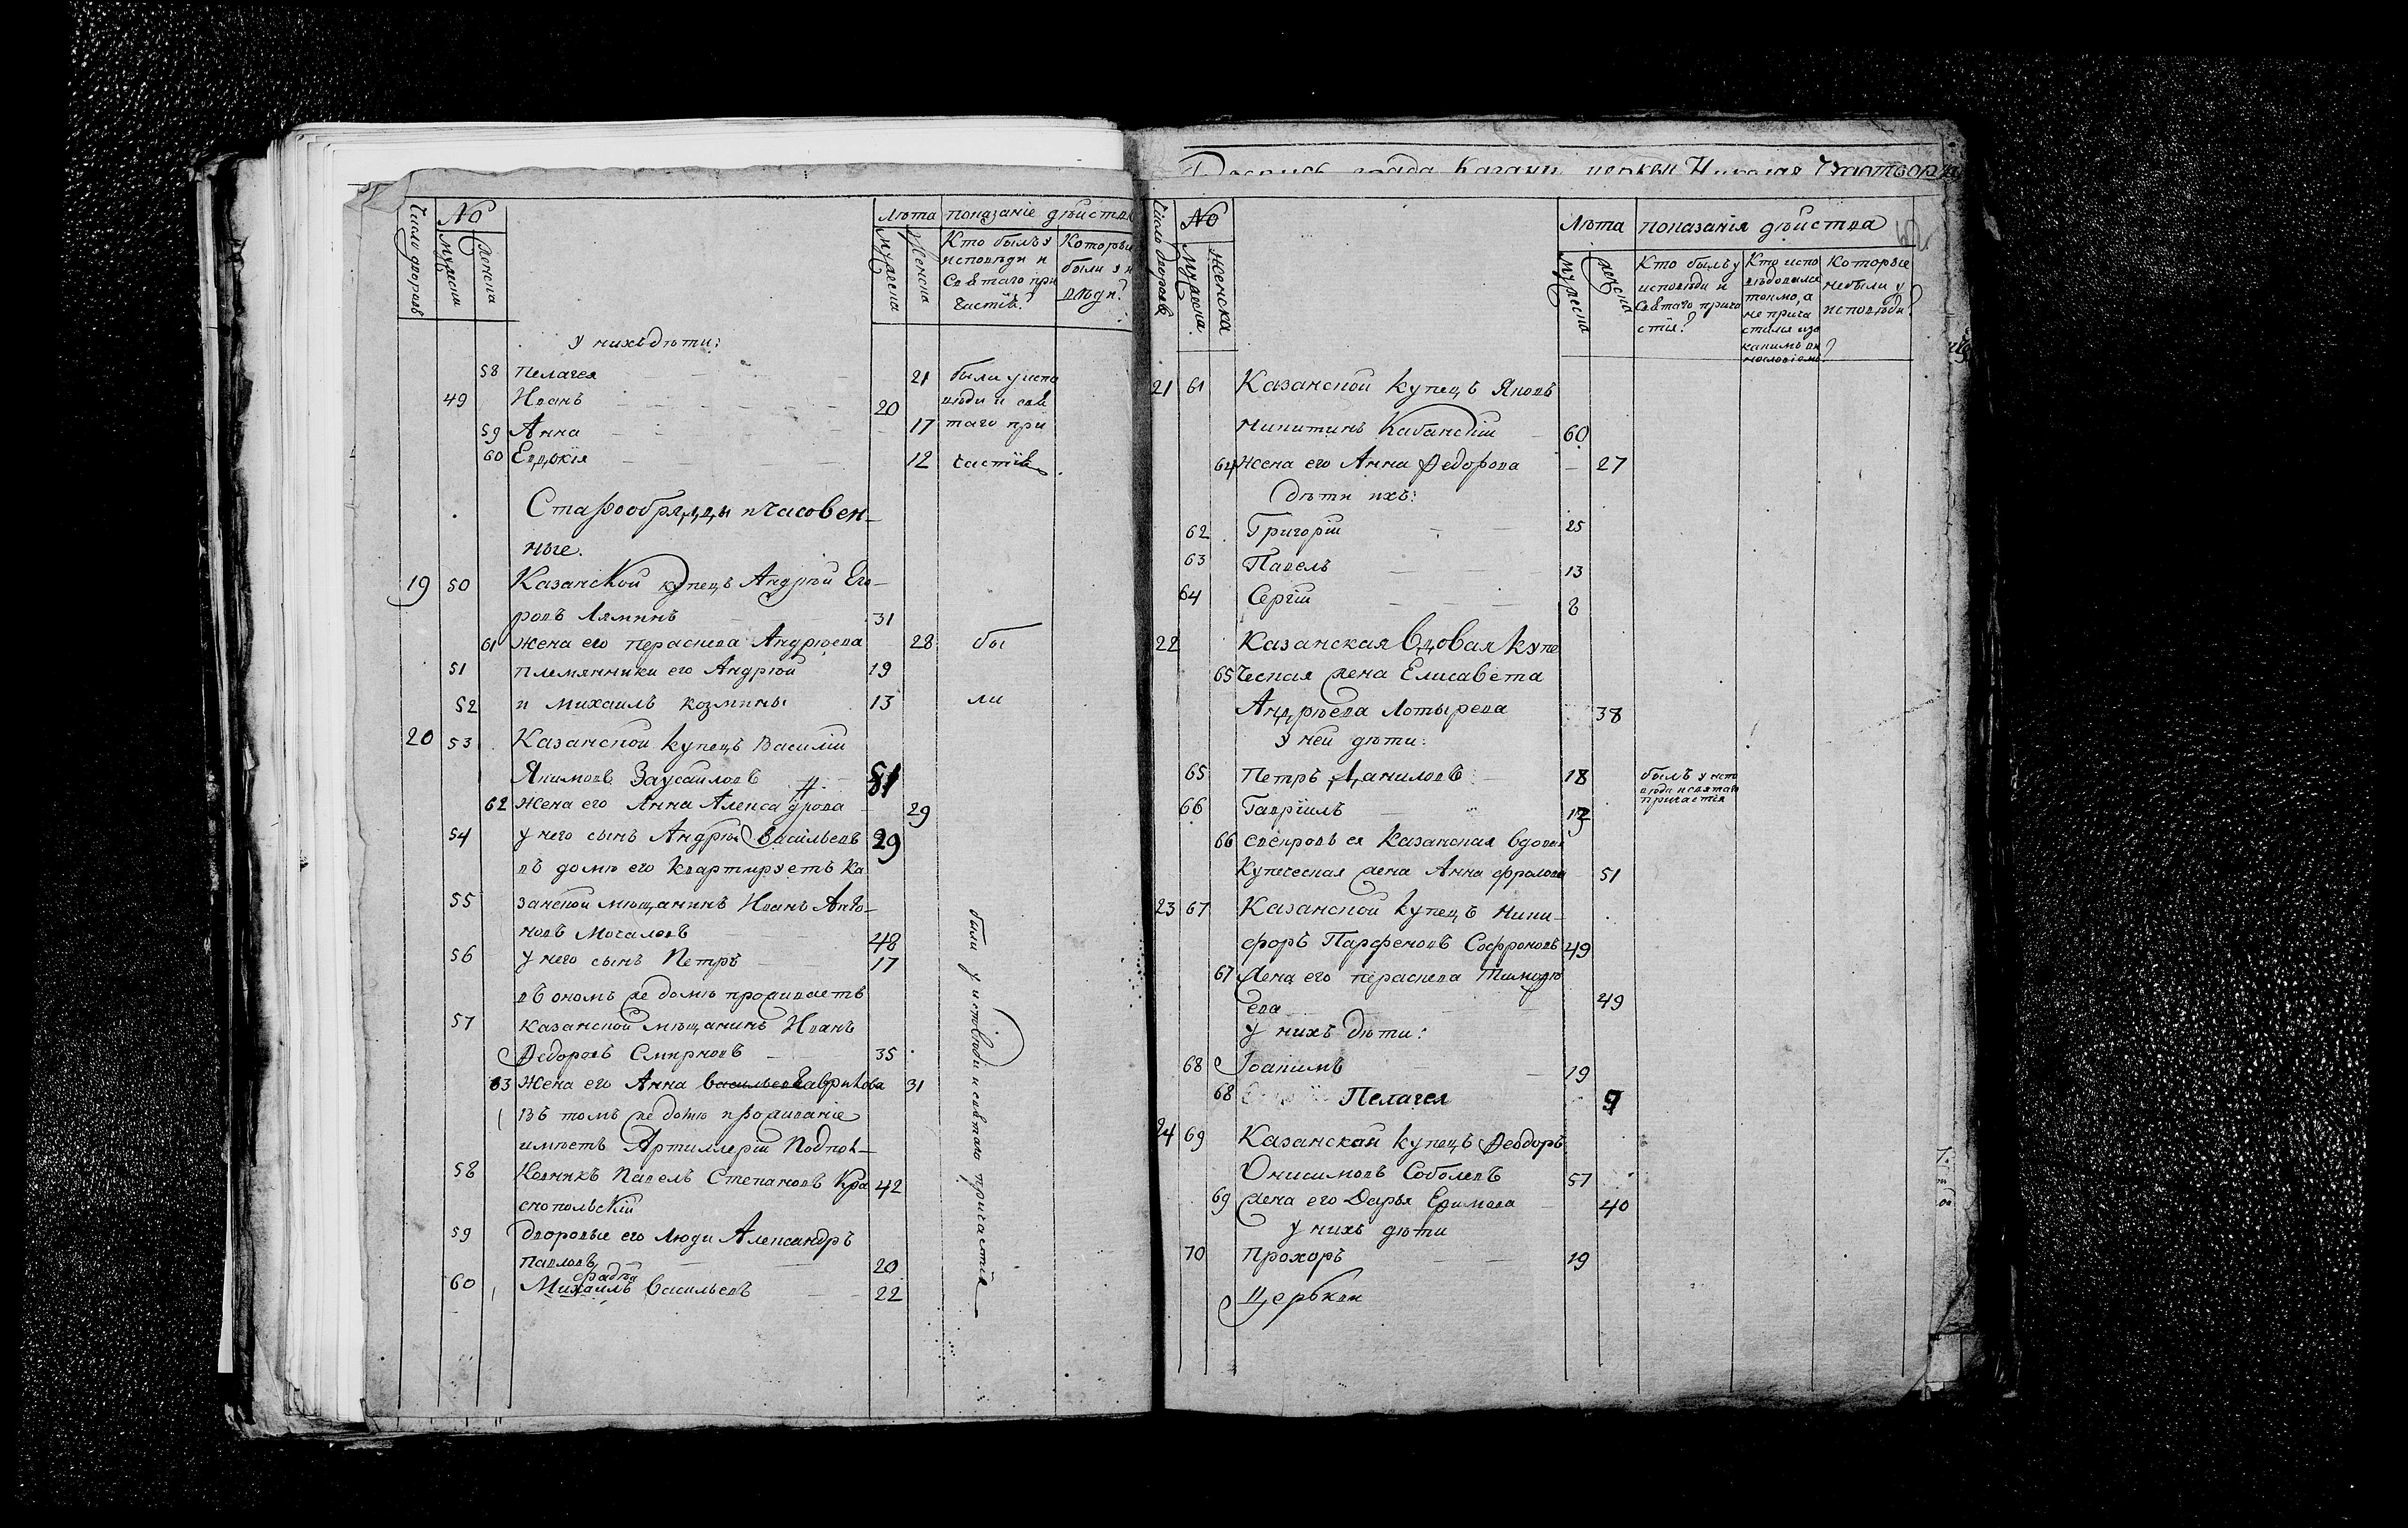 Число дворовъ
№
Мужеска
Женска
Лѣта
Мужеска
Женска
показаніе дѣйства
Кто былъ у
исповѣди и
Святаго при
частія?
Которые
были у и
вѣди?
у нихъ дѣти:
58 Пелагея 21 были у испо
49 Иванъ 20 вѣди и свя
59 Анна 17 таго при
60 Евдокія 12 частія
Старообрядцы и часовен-
ные.
19 50 Казанской купецъ Андрѣй Его-
ровъ Ляминъ 31
61 Жена его Параскева Андрѣева 28 бы
51 племянники его Андрѣй 19
52 и Михаилъ Козмины 13 ли
20 53 Казанской купецъ Василій
Якимовъ Заусайловъ 51
62 Жена его Анна Александрова 29
54 у него сынъ Андрѣй Васильевъ 29
въ домѣ его квартируетъ Ка
55 занской мѣщанинъ Иванъ Анто-
новъ Мочаловъ 48
56 у него сынъ Петръ 17
въ ономъ же домѣ проживаетъ
57 Казанской мѣщанинъ Иванъ
Федоровъ Смирновъ 35
63 Жена его Анна Васильева Гаврилова 31
Въ томъ же домѣ проживаніе
имѣетъ Артиллеріи Подпол-
58 ковникъ Павелъ Степановъ Кра 42
снопольскій
59 дворовые его люди Александръ
Павловъ 20
60 Михаилъ Васильевъ 22
были у исповѣди и святаго причастія
Роспись града Казани церкви Николая Чудотворца
Число дворовъ
№
Мужеска
Женска
Лѣта
Мужеска
Женска
показанія дѣйства
Кто былъ у
исповѣди и
Святаго прича
стія?
Кто испо
вѣдовался
токмо, а
не прича
стился и за
какимъ ви
нословіемъ?
Которые
небыли у
исповѣди?
21 61 Казанской купецъ Яковъ
Никитинъ Кабанскій 60
64 Жена его Анна Федорова 27
дѣти ихъ:
62 Григорій 25
63 Павелъ 13
64 Сергій 8
22 Казанская вдовая купе
65 ческая жена Елисавета
Андрѣева Лотырева 38
у ней дѣти:
65 Петръ Даниловъ 18 былъ у испо
вѣди и святаго
причастія
66 Гавріилъ
66 свекровь ея Казанская вдовая
Купеческая жена Анна Фролова 51
23 67 Казанской купецъ Ники-
форъ Парфеновъ Софроновъ 49
67 Жена его Параскева Тимофѣ
ева 49
У нихъ дѣти:
68 Іоакимъ 19
68 Пелагея 9
24 69 Казанской купецъ Феодоръ
Онисимовъ Соболевъ 57
69 жена его Дарья Ефимова 40
у нихъ дѣти
70 Прохоръ 19
Церькви